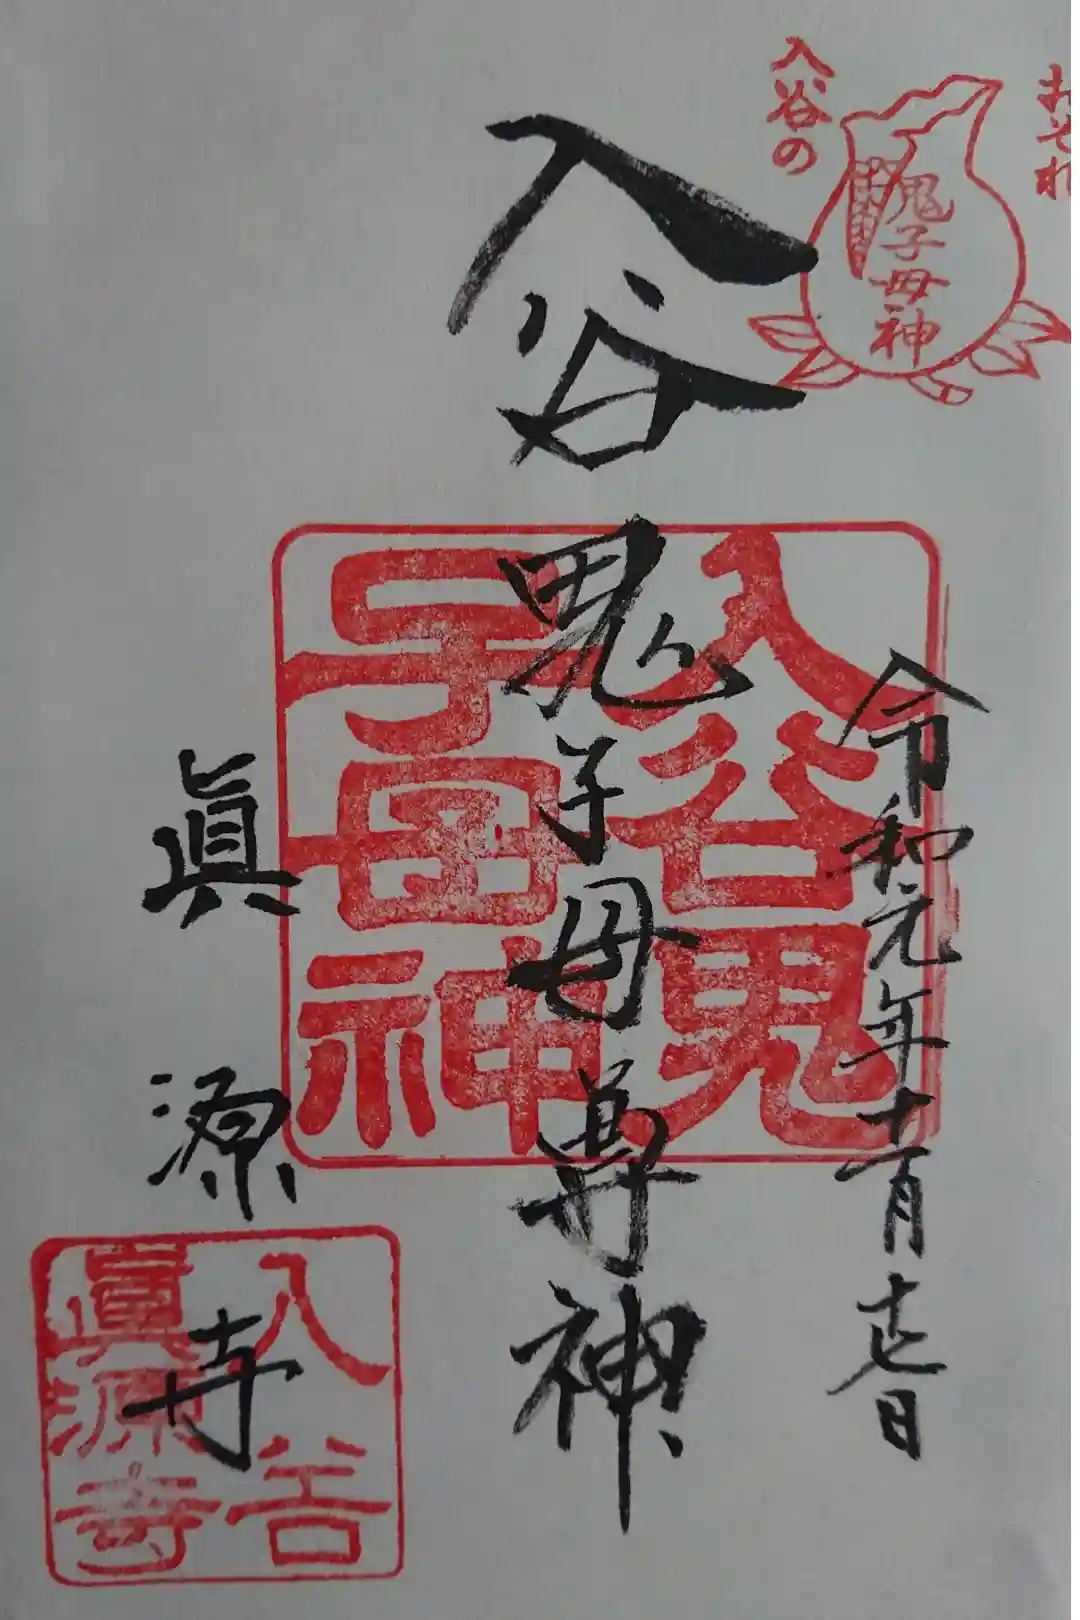 おそれ
入谷の
鬼子母神
令和元年十一月十七日
入谷
鬼子母尊神
入谷鬼
子母神
眞源寺
入谷
眞源寺